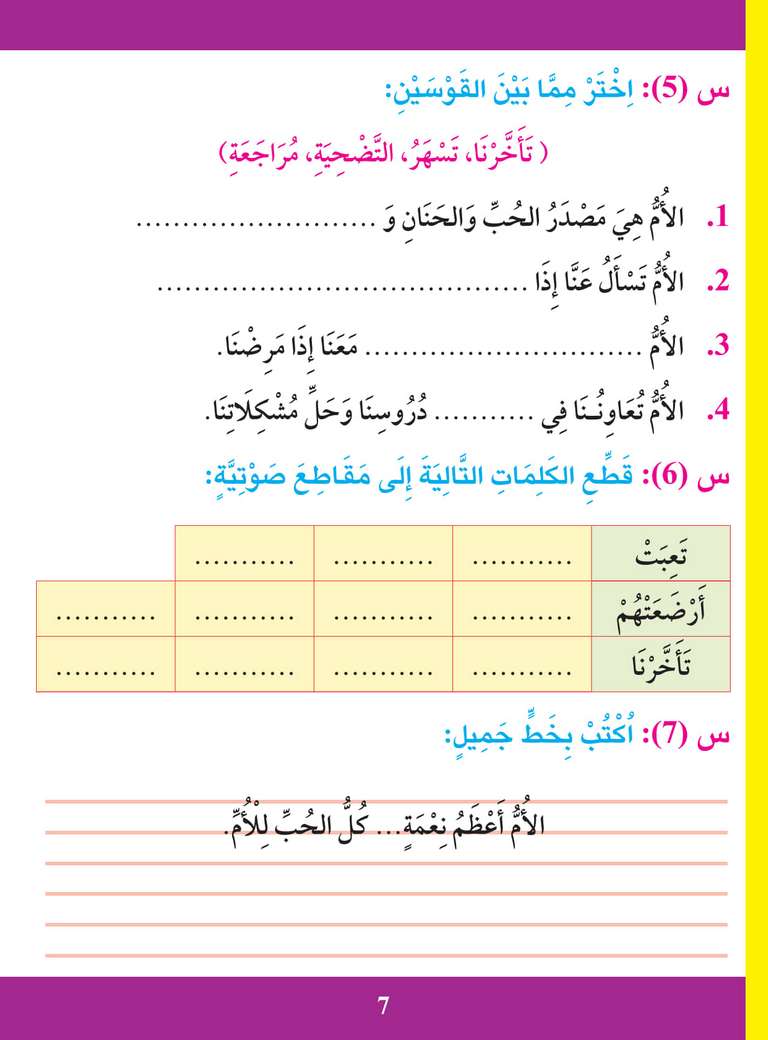 س (5): اِخْتَرْ مِمَّا بَيْنَ القَوْسَيْنِ:
( تَأَخَّرْنَا، تَسْهَرُ، التَّضْحِيَةِ، مُرَاجَعَةِ)
1. الأُمُّ هِيَ مَصْدَرُ الحُبِّ وَالحَنَانِ وَ ..........................
2. الأُمُّ تَسْأَلُ عَنَّا إِذَا ........................................
3. الأُمُّ .............................. مَعَنَا إِذَا مَرِضْنَا.
4. الأُمُّ تُعَاوِنُـنَا فِي ........... دُرُوسِنَا وَحَلِّ مُشْكِلَاتِنَا.
س (6): قَطِّعِ الكَلِمَاتِ التَّالِيَةَ إِلَى مَقَاطِعَ صَوْتِيَّةٍ:
تَعِبَتْ ........... ........... ...........
أَرْضَعَتْهُمْ ........... ........... ........... ...........
تَأَخَّرْنَا ........... ........... ........... ...........
س (7): اُكْتُبْ بِخَطٍّ جَمِيلٍ:
الأُمُّ أَعْظَمُ نِعْمَةٍ... كُلُّ الحُبِّ لِلْأُمِّ.
7